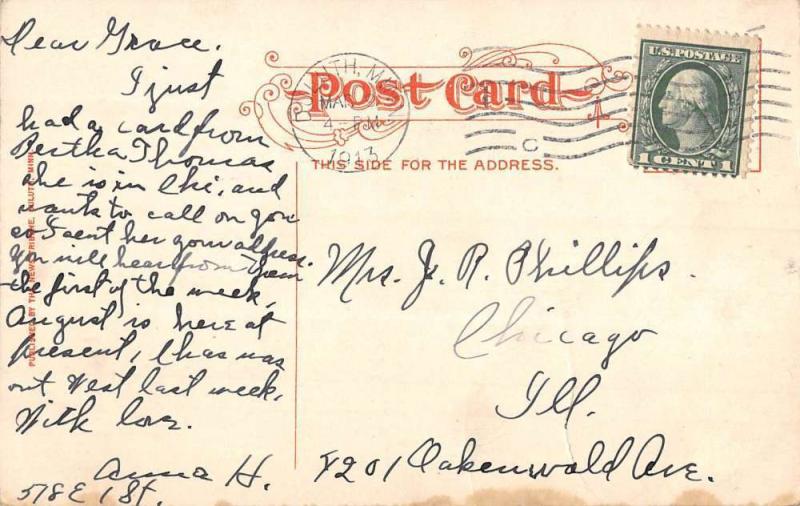 Dear Grace.
I just
had a card from
Bertha Thomas
she is in Chi, and
wants to call on you
so I sent her your address.
You will hear from them
the first of the week,
August is here at
present, Chas was
out West last week,
With love.
Anna H.
518 E 1 St.
PUBLISHED BY THE NEWS TRIBUNE, DULUTH, MINN.
Post Card
THIS SIDE FOR THE ADDRESS.
DULUTH, MINN
MAR
4 - PM
1913
C
U.S. POSTAGE
1 CENT 1
Mrs. J. R. Phillips.
Chicago
Ill.
4201 Oakenwald Ave.